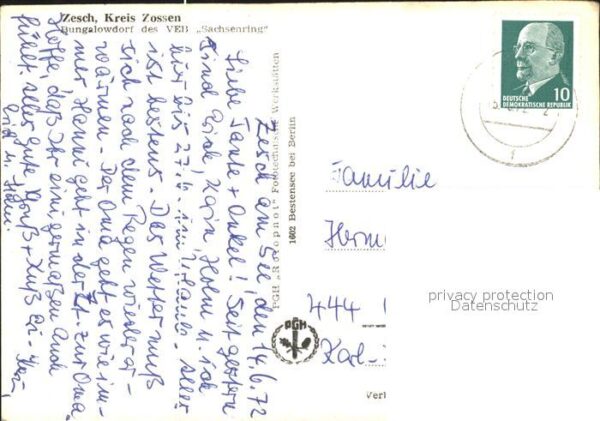 Zesch, Kreis Zossen
Bungalowdorf des VEB „Sachsenring"
Zesch am See, den 14.6.72
Liebe Tante + Onkel! Seit gestern
sind Rein, Holm u. ich
hier bis 27.6. im Urlaub. Alles
ist bestens. Das Wetter muß
sich nach dem Regen wieder er-
wärmen. Der Oma geht es wie im-
mer. Hanni geht in der Zt. zur Oma.
Hoffe, daß Ihr einigermaßen Euch
fühlt. Alles gute, Gruß + Kuß Ei-
PGH „Rotophot" Fototechnische Werkstätten
1602 Bestensee bei Berlin
PGH
DEUTSCHE
DEMOKRATISCHE REPUBLIK
10
Familie
Herm
444
Karl-
Verl
privacy protection
Datenschutz